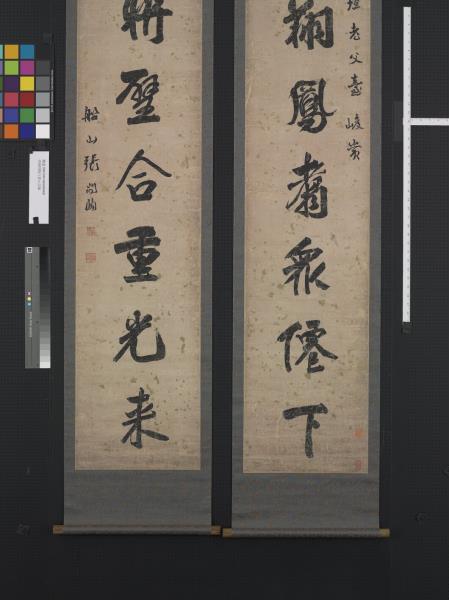 老父臺峻賞
翔鳳翥衆僊下
聯璧合重光来
船山張問陶